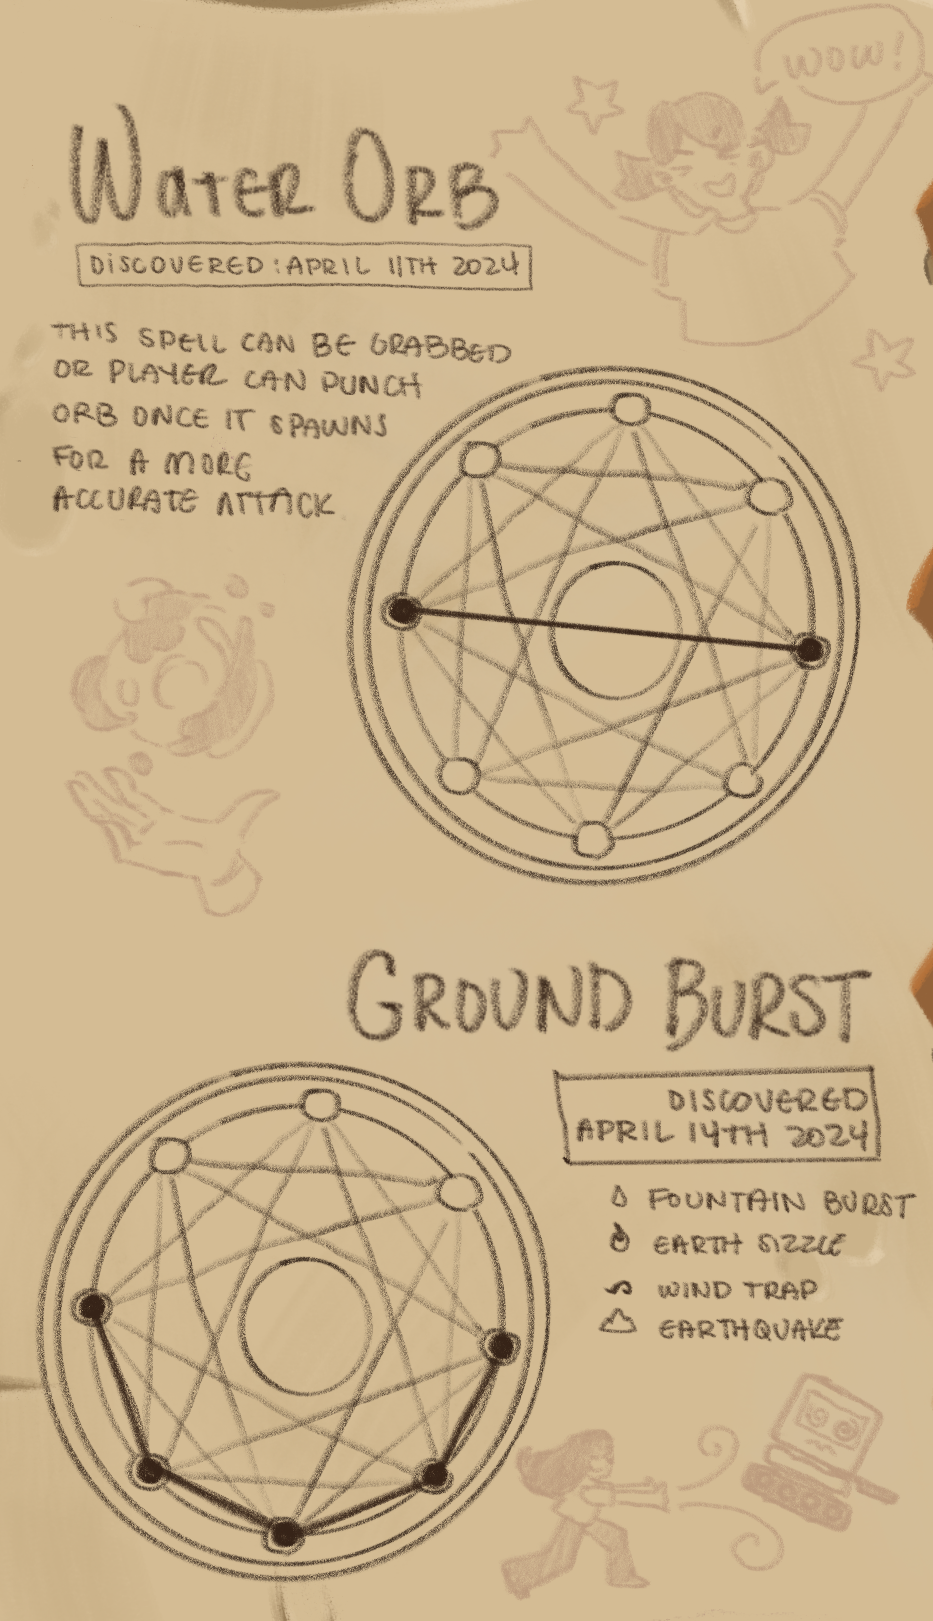 WOW!
WATER ORB
DISCOVERED: APRIL 11TH 2024
THIS SPELL CAN BE GRABBED
OR PLAYER CAN PUNCH
ORB ONCE IT SPAWNS
FOR A MORE
ACCURATE ATTACK
GROUND BURST
DISCOVERED
APRIL 14TH 2024
FOUNTAIN BURST
EARTH SIZZLE
WIND TRAP
EARTHQUAKE